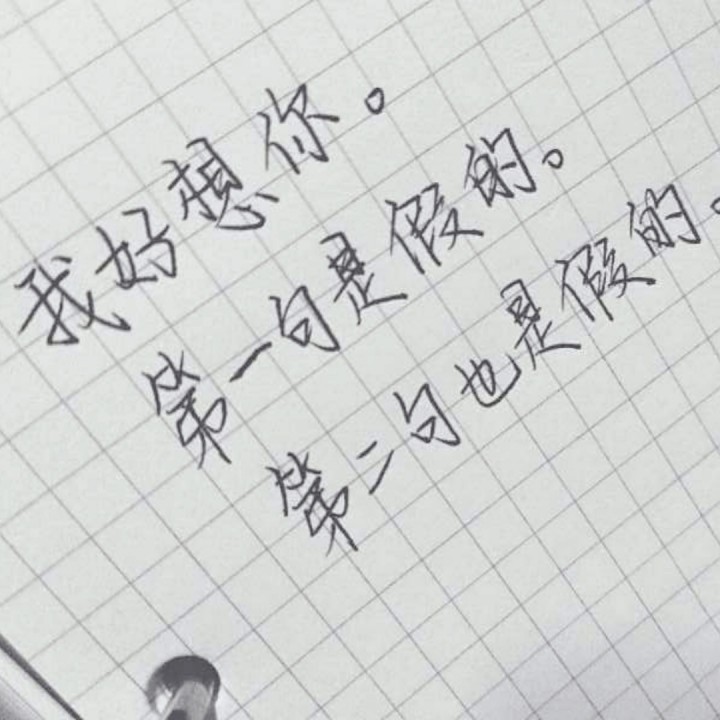 我好想你。
第一句是假的。
第二句也是假的。